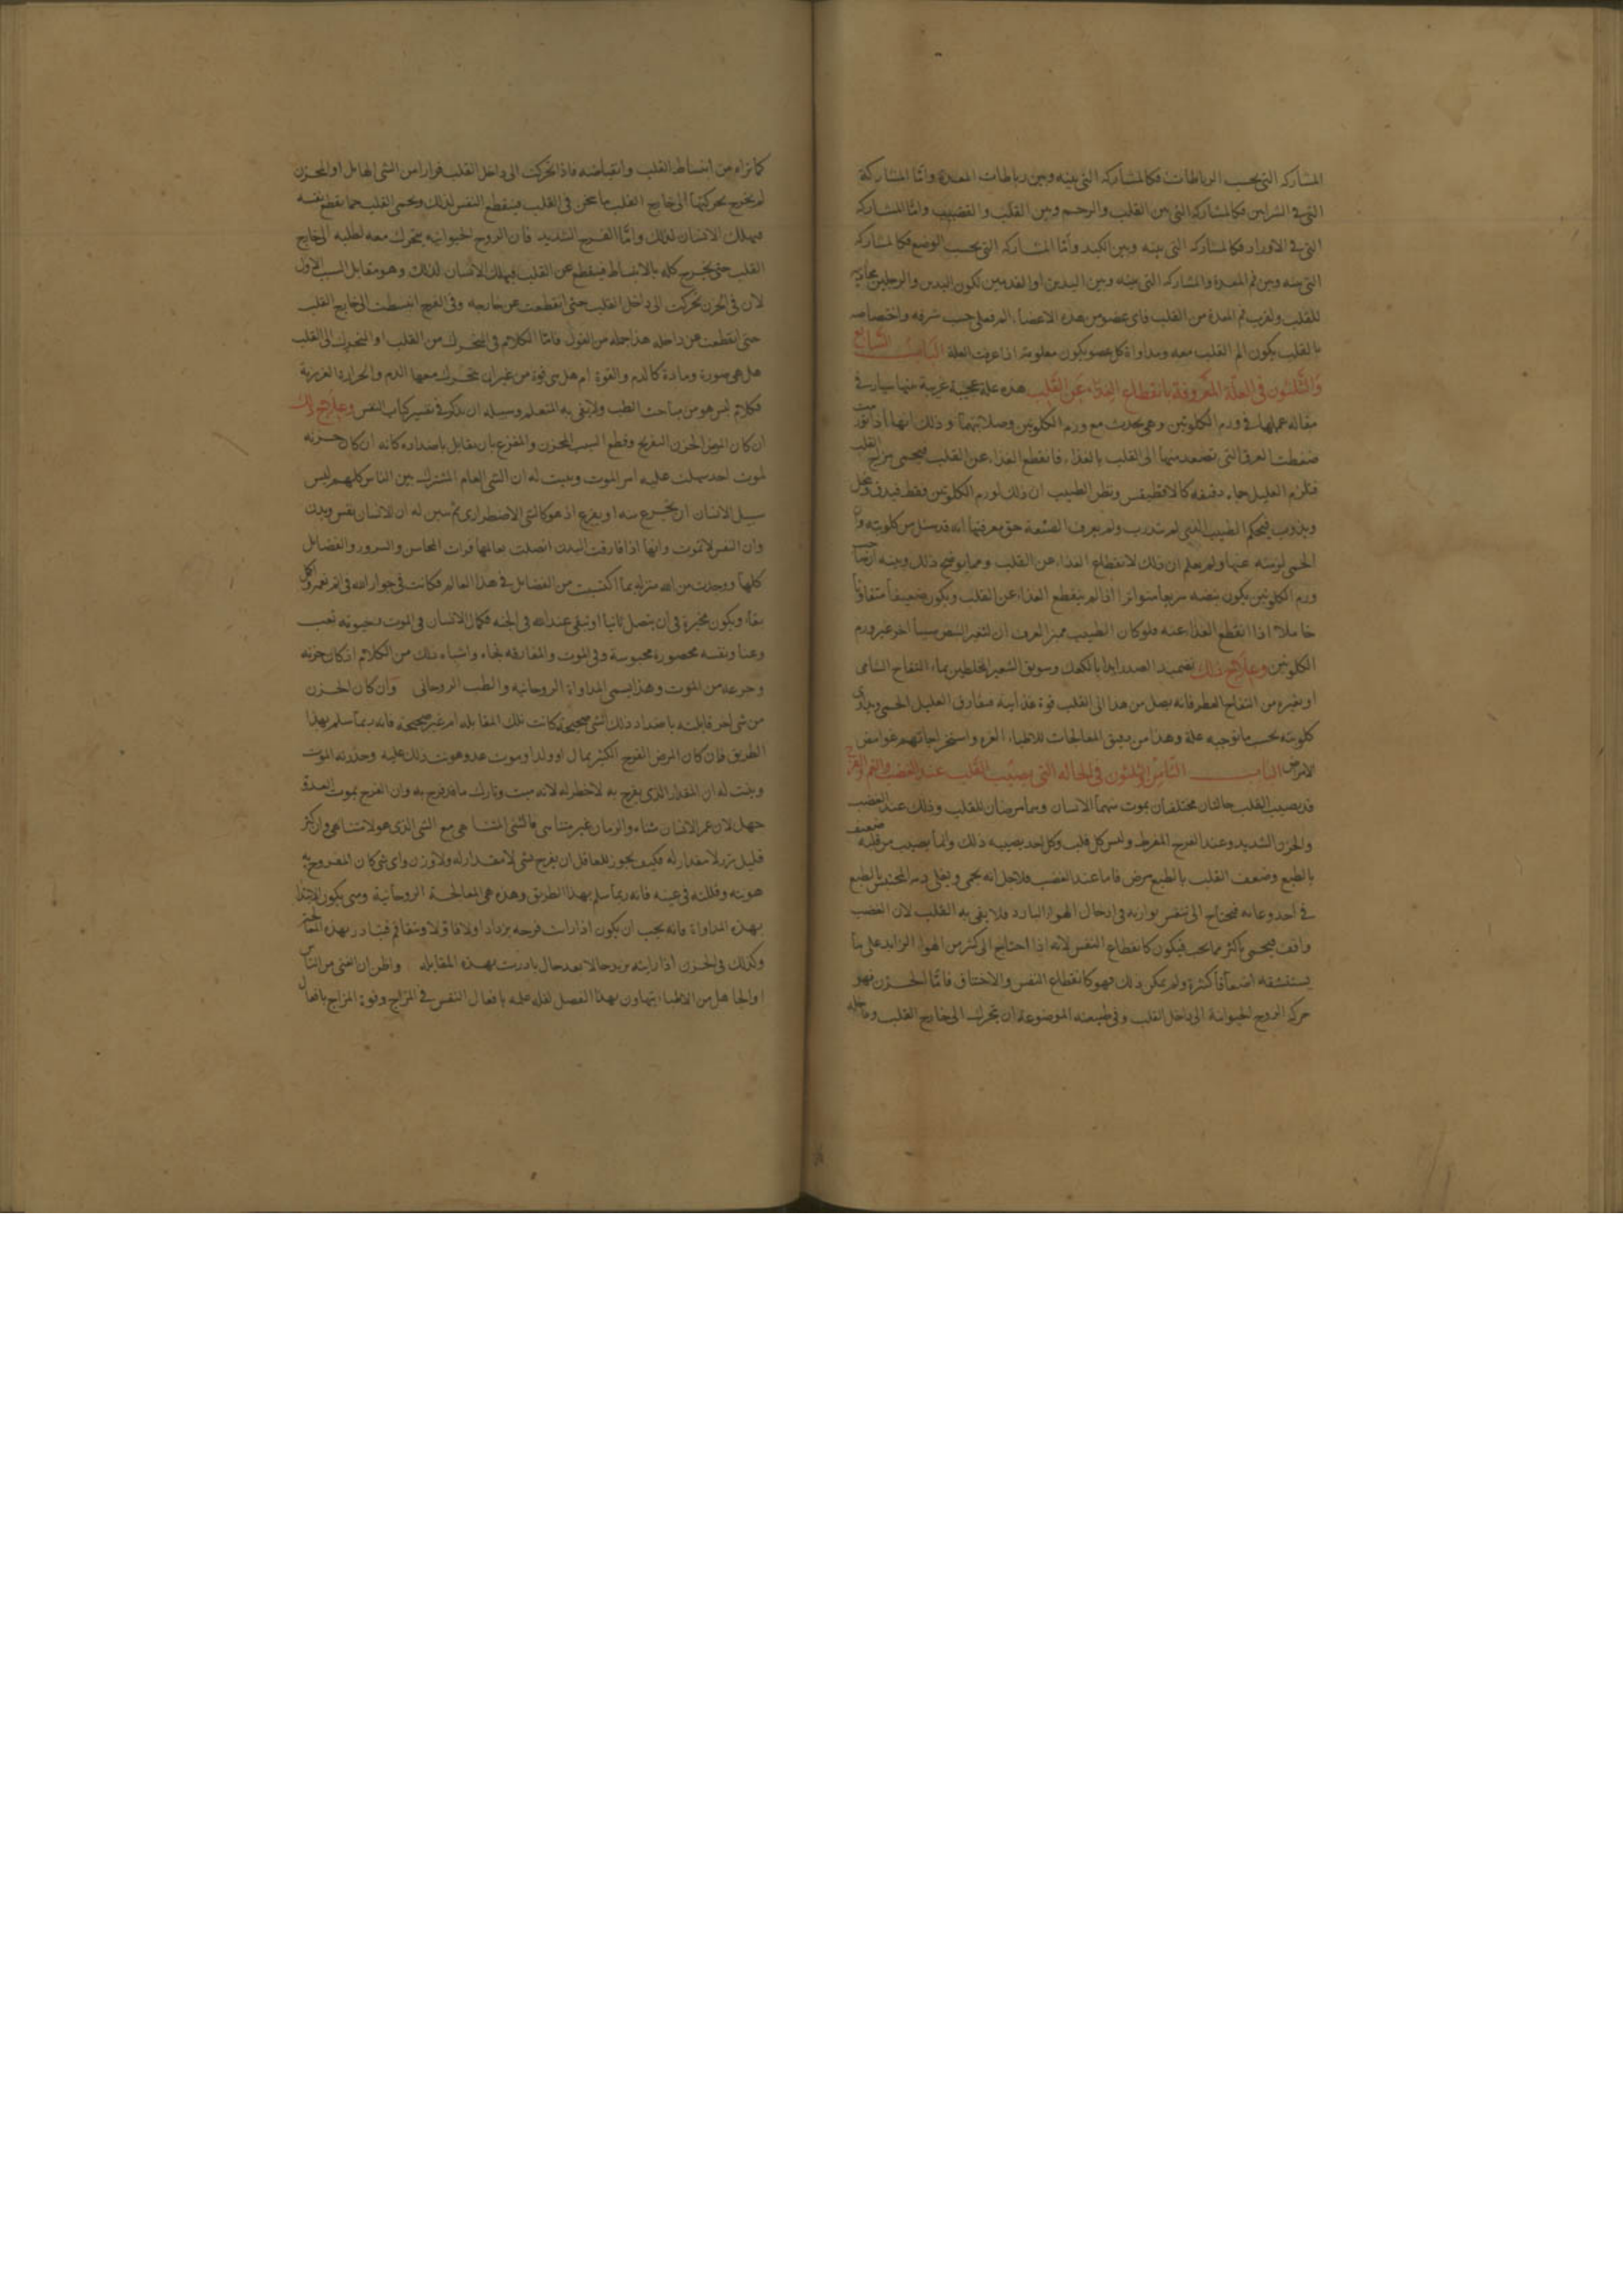 المشاركه التى بحسب الرباطات فكالمشاركه التى بينه وبين رباطات المعدة واما المشاركة
التى فى الشرايين فكالمشاركه التى بين القلب والرحم وبين القلب والقضيب واما المشاركه
التى فى الاوراد فكالمشاركه التى بينه وبين الكبد واما المشاركه التى بحسب الوضع فكالمشاركه
التى بينه وبين فم المعدة والمشاركه التى بينه وبين اليدين او القدمين لكون اليدين والرجلين محاذيه
للقلب ولقرب فم المعدة من القلب فاى عضو من هذه الاعضاء الم فعلى حسب شرفه واختصاصه
بالقلب يكون الم القلب معه ومداواة كل عضو يكون معلومة اذا عرفت العلة الباب السابع
والثلثون فى العلة المعروفة بانقطاع الغذاء عن القلب هذه علة عجيبة غريبة
مقالة عملها فى ورم الكلوتين وهى يحدث مع ورم الكلوتين وصلابتهما وذلك انها اذا تورمت
ضغطت العرق التى تصعد منها الى القلب بالغذاء فانقطع الغذاء عن القلب فيحمى مزاج القلب
فتلزم العليل حماء دقيقه كالاقطيقس ويظن الطبيب ان ذلك لورم الكلوتين فقط
ويذوب فيحكم الطبيب الغبى لم يتدرب ولم يعرف الصنعة حق معرفتها انه قد سل من كلوتيه وان
الحمى لزمته عنها ولم يعلم ان ذلك لانقطاع الغذاء عن القلب ومما يوضح ذلك وبينه
ورم الكلوتين يكون نبضه سريعا متواترا اذا لم ينقطع الغذاء عن القلب ويكون ضعيفا متفاوتا
خاملا اذا انقطع الغذاء عنه فلو كان الطبيب مميز العرف ان لتغير النبض سببا اخر غير ورم
الكلوتين وعلاج ذلك تضميد الصدر ابدا بالكعك وسويق الشعير المخلطين بماء التفاح الشامى
او بغيره من التفاح العطر فانه يصل من هذا الى القلب قوة غذائية فيفارق العليل الحمى ويداوى
كلوتيه بحسب ما توجبه علة وهذا من دقيق المعالجات للاطباء واستخراجاتهم غوامض
الامراض الباب الثامن والثلثون فى الحاله التى يصيب القلب عند الغضب والغم والفرح
قد يصيب القلب حالتان مختلفتان يموت منهما الانسان وهما مرضان للقلب وذلك عند الغضب
والحزن الشديد وعند الفرح المفرط وليس كل قلب وكل احد يصيبه ذلك وانما يصيب من قلبه ضعيف
بالطبع وضعف القلب بالطبع مرض فاما عند الغضب فلاجل انه يحمى ويغلى دمه المحتبس بالطبع
فيحتاج الى تنفس يوازيه فى ادخال الهواء البارد ولا يفى به القلب لان الغضب
فيحمى باكثر مما يجب فيكون كانقطاع النفس لانه اذا احتاج الى كثر من الهواء الزايد على ما
يستنشقه اضعافا كثيرة ولم يمكن ذلك فهو كانقطاع النفس والاختناق فاما الحزن فهو
حركة الروح الحيوانية الى داخل القلب وفى طبيعته الموضوعة ان يتحرك الى خارج القلب وداخله
كما تراه من انبساط القلب وانقباضه فاذا تحركت الى داخل القلب فرارا من الشى الهايل او المحزن
لم يخرج بحركتها الى خارج القلب ما يحمى فى القلب فينقطع النفس لذلك ويحمى القلب
فيهلك الانسان لذلك واما الفرح الشديد فان الروح الحيوانيه يتحرك معه لطلبه الى خارج
القلب حتى يخرج كله بالانبساط فينقطع عن القلب فيهلك الانسان لذلك وهو مقابل السبب الاول
لان فى الحزن تحركت الى داخل القلب حتى انقطعت عن خارجه وفى الفرح انبسطت الى خارج القلب
حتى انقطعت عن داخله هذا جملة من القول فاما الكلام فى المتحرك من القلب او المتحرك الى القلب
هل هى صورة ومادة كالدم والقوة ام هل هى قوة من غير ان يتحرك معها الدم والحرارة الغريزية
فكلام ليس هو من مباحث الطب ولا يفى به المتعلم وسبيله ان يذكر فى تفسير كتاب النفس وعلاج ذلك
ان كان المرض الحزن التفريح وقطع السبب المحزن والمفزع بان يقابل باضداده كانه ان كان حزنه
لموت احد سهلت عليه امر الموت وبينت له ان الشى العام المشترك بين الناس كلهم ليس
سبيل الانسان ان يجزع منه او يفزع اذ هو كالشى الاضطرارى ثم تبين له ان الانسان نفس وبدن
وان النفس لا تموت وانها اذا فارقت البدن اتصلت بعالمها فرات المحاسن والسرور والفضايل
كلها ووجدت من الله منزله بما اكتسبت من الفضايل فى هذا العالم فكانت فى جوار الله فى اتم نعمه
بقاء ويكون مخيرة فى ان يتصل ثانيا او تبقى عند الله فى الجنه فكمال الانسان فى الموت وحيوته تعب
وعنا ونفسه محصورة محبوسة وفى الموت والمفارقه نجاه واشباه ذلك من الكلام اذ كان حزنه
وجزعه من الموت وهذا يسمى المداواة الروحانيه والطب الروحانى وان كان الحزن
من شى اخر قابلته باضداد ذلك الشى صحيحة كانت تلك المقابله ام غير صحيحة فانه ربما سلم بهذا
الطريق فان كان المرض الفرح الكثير بمال او ولد او موت عدو هونت ذلك عليه وحذرته الموت
وبينت له ان المقدار الذى يفرح به لا خطر له لانه ميت وتارك ما قد فرح به وان الفرح بموت العدو
جهل لان عمر الانسان متناه والزمان غير متناهى فالشى المتناهى مع الشى الذى هو لا متناهى وان كثر
قليل نزر لا مقدار له فكيف يجوز للعاقل ان يفرح بشى لا مقدار له ولا وزن واى شى كان المفروح به
هونته وقللته فى عينه فانه ربما سلم بهذا الطريق وهذه هى المعالجة الروحانية ومتى يكون الابتدا
بهذه المداواة فانه يجب ان يكون اذا رايت فرحه يزداد اولا فاولا فتبادر بهذه
وكذلك فى الحزن اذا رايته يزيد حالا بعد حال بادرت بهذه المقابله واظن ان الغبى من الناس
او الجاهل من الاطباء يتهاون بهذا الفصل لقلة علمه بافعال النفس فى المزاج وقوة المزاج بافعال